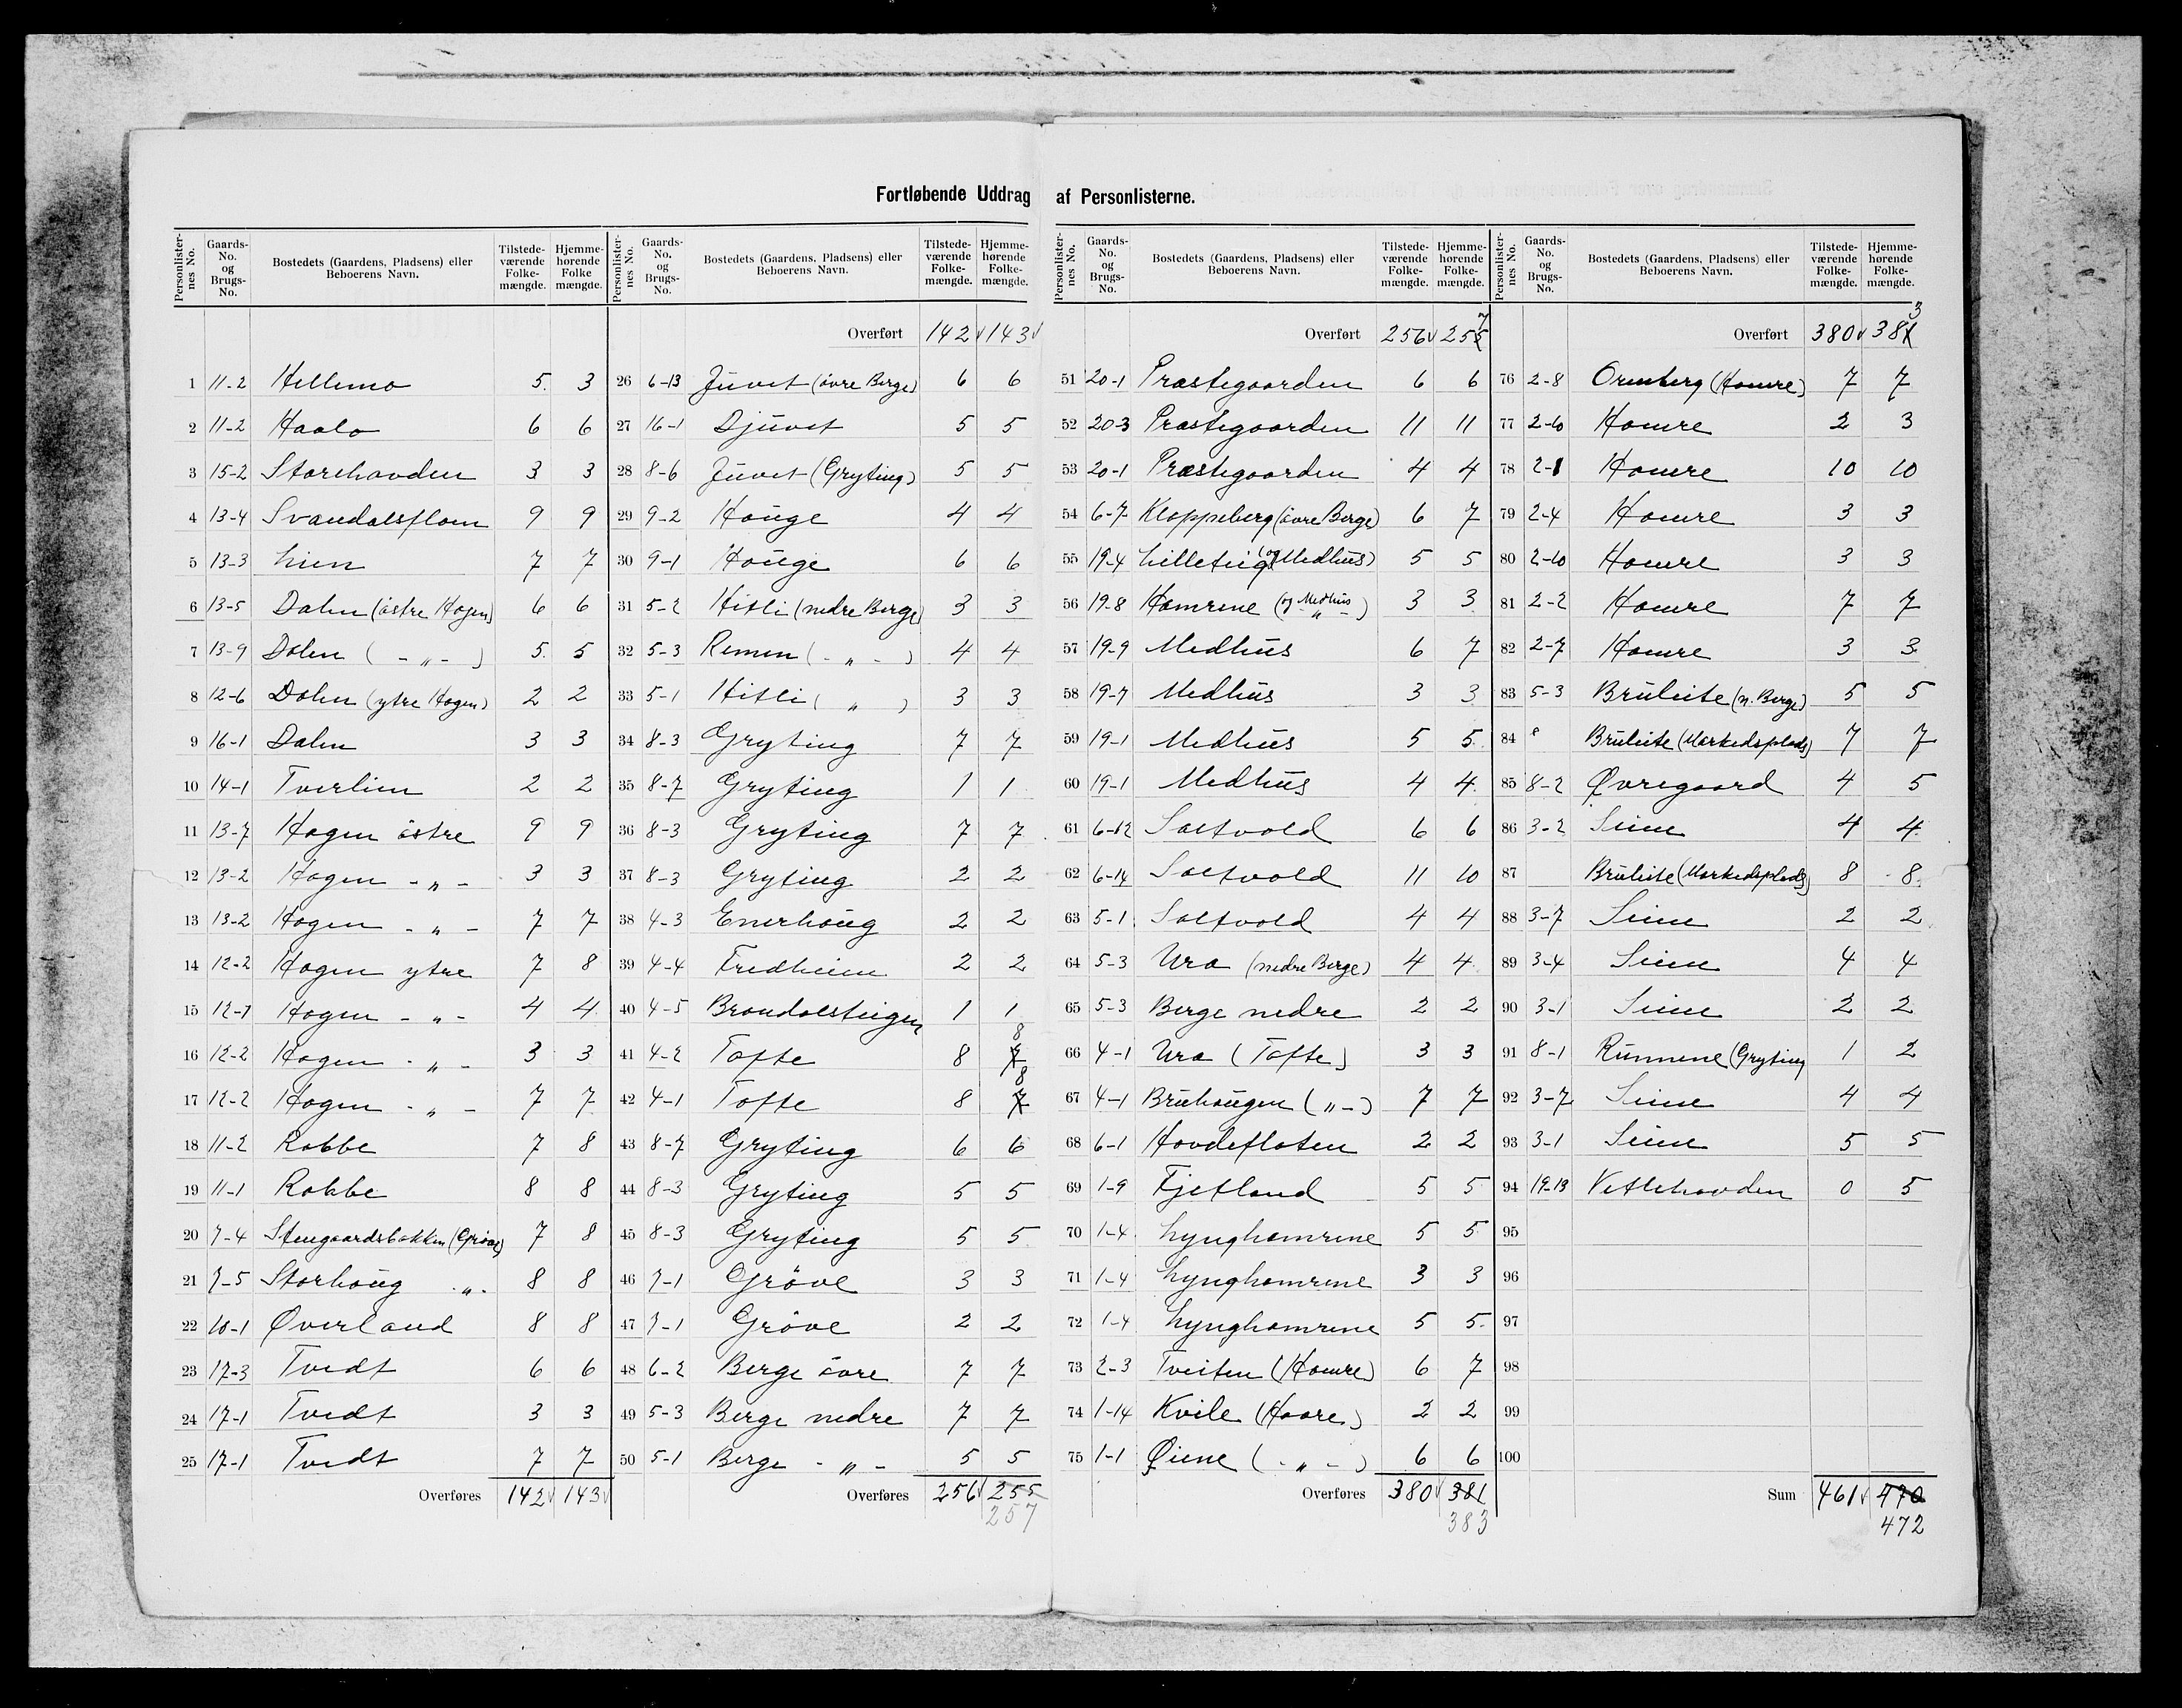 Fortløbende Uddrag af Personlisterne.
Personlisternes No. | Gaards-No. og Brugs-No. | Bostedets (Gaardens, Pladsens) eller Beboerens Navn. | Tilstedeværende Folkemængde. | Hjemmehørende Folkemængde.
1 11-2 Hellemo 5 3
2 11-2 Haalo 6 6
3 15-2 Storehovden 3 3
4 13-4 Svandalsflom 9 9
5 13-3 Lien 7 7
6 13-5 Dalen (östre Hagen) 6 6
7 13-9 Dalen ( - „ - ) 5 5
8 12-6 Dalen (ytre Hagen) 2 2
9 16-1 Dalen 3 3
10 14-1 Tverlien 2 2
11 13-7 Hagen östre 9 9
12 13-2 Hagen - „ - 3 3
13 13-2 Hagen - „ - 7 7
14 12-2 Hagen ytre 7 8
15 12-7 Hagen - „ - 4 4
16 12-2 Hagen - „ - 3 3
17 12-2 Hagen - „ - 7 7
18 11-2 Rabbe 7 8
19 11-1 Rabbe 8 8
20 7-4 Stengaardsbakken (Gröve) 7 8
21 7-5 Storhoug - „ - 8 8
22 10-1 Øverland 8 8
23 17-3 Tvedt 6 6
24 17-1 Tvedt 3 3
25 17-1 Tvedt 7 7
Overføres 142 143
Overført 142 143
26 6-13 Juvet (övre Berge) 6 6
27 16-1 Djuvet 5 5
28 8-6 Juvet (Gryting) 5 5
29 9-2 Houge 4 4
30 9-1 Houge 6 6
31 5-2 Hitli (nedre Berge) 3 3
32 5-3 Remen ( - „ - ) 4 4
33 5-1 Hitli ( „ ) 3 3
34 8-3 Gryting 7 7
35 8-7 Gryting 1 1
36 8-3 Gryting 7 7
37 8-3 Gryting 2 2
38 4-3 Enerhoug 2 2
39 4-4 Fredheim 2 2
40 4-5 Brondalsteigen 1 1
41 4-2 Tofte 8 7 8
42 4-1 Tofte 8 7 8
43 8-7 Gryting 6 6
44 8-3 Gryting 5 5
45 8-3 Gryting 5 5
46 7-1 Gröve 3 3
47 7-1 Gröve 2 2
48 6-2 Berge övre 7 7
49 5-3 Berge nedre 7 7
50 5-1 Berge - „ - 5 5
Overføres 256 255
257
Overført 256 255 7
51 20-1 Præstegaarden 6 6
52 20-3 Præstegaarden 11 11
53 20-1 Præstegaarden 4 4
54 6-7 Kloppeberg (övre Berge) 6 7
55 19-4 Lilleteig (og Medhus) 5 5
56 19-8 Hamrene (og Medhus - „ - ) 3 3
57 19-9 Medhus 6 7
58 19-7 Medhus 3 3
59 19-1 Medhus 5 5
60 19-1 Medhus 4 4
61 6-12 Saltvold 6 6
62 6-14 Saltvold 11 10
63 5-1 Saltvold 4 4
64 5-3 Ura (nedre Berge) 4 4
65 5-3 Berge nedre 2 2
66 4-1 Ura (Tofte) 3 3
67 4-1 Bruhougen ( „ - ) 7 7
68 6-1 Hovdeflaten 2 2
69 1-9 Fjetland 5 5
70 1-4 Lynghamrene 5 5
71 1-4 Lynghamrene 3 3
72 1-4 Lynghamrene 5 5
73 2-3 Tveiten (Hamre) 6 7
74 1-14 Kvile (Haare) 2 2
75 1-1 Øiene ( - „ - ) 6 6
Overføres 380 381
383
Overført 380 381 3
76 2-8 Orenberg (Hamre) 7 7
77 2-6 Hamre 2 3
78 2-1 Hamre 10 10
79 2-4 Hamre 3 3
80 2-10 Hamre 3 3
81 2-2 Hamre 7 7
82 2-7 Hamre 3 3
83 5-3 Bruleite (n. Berge) 5 5
84 Bruleite (Markedsplads) 7 7
85 8-2 Øvregaard 4 5
86 3-2 Seim 4 4
87 Bruleite (Markedsplads) 8 8
88 3-7 Seim 2 2
89 3-4 Seim 4 4
90 3-1 Seim 2 2
91 8-1 Runnene (Gryting 1 2
92 3-7 Seim 4 4
93 3-1 Seim 5 5
94 19-13 Vetlehovden 0 5
95
96
97
98
99
100
Sum 461 470
472